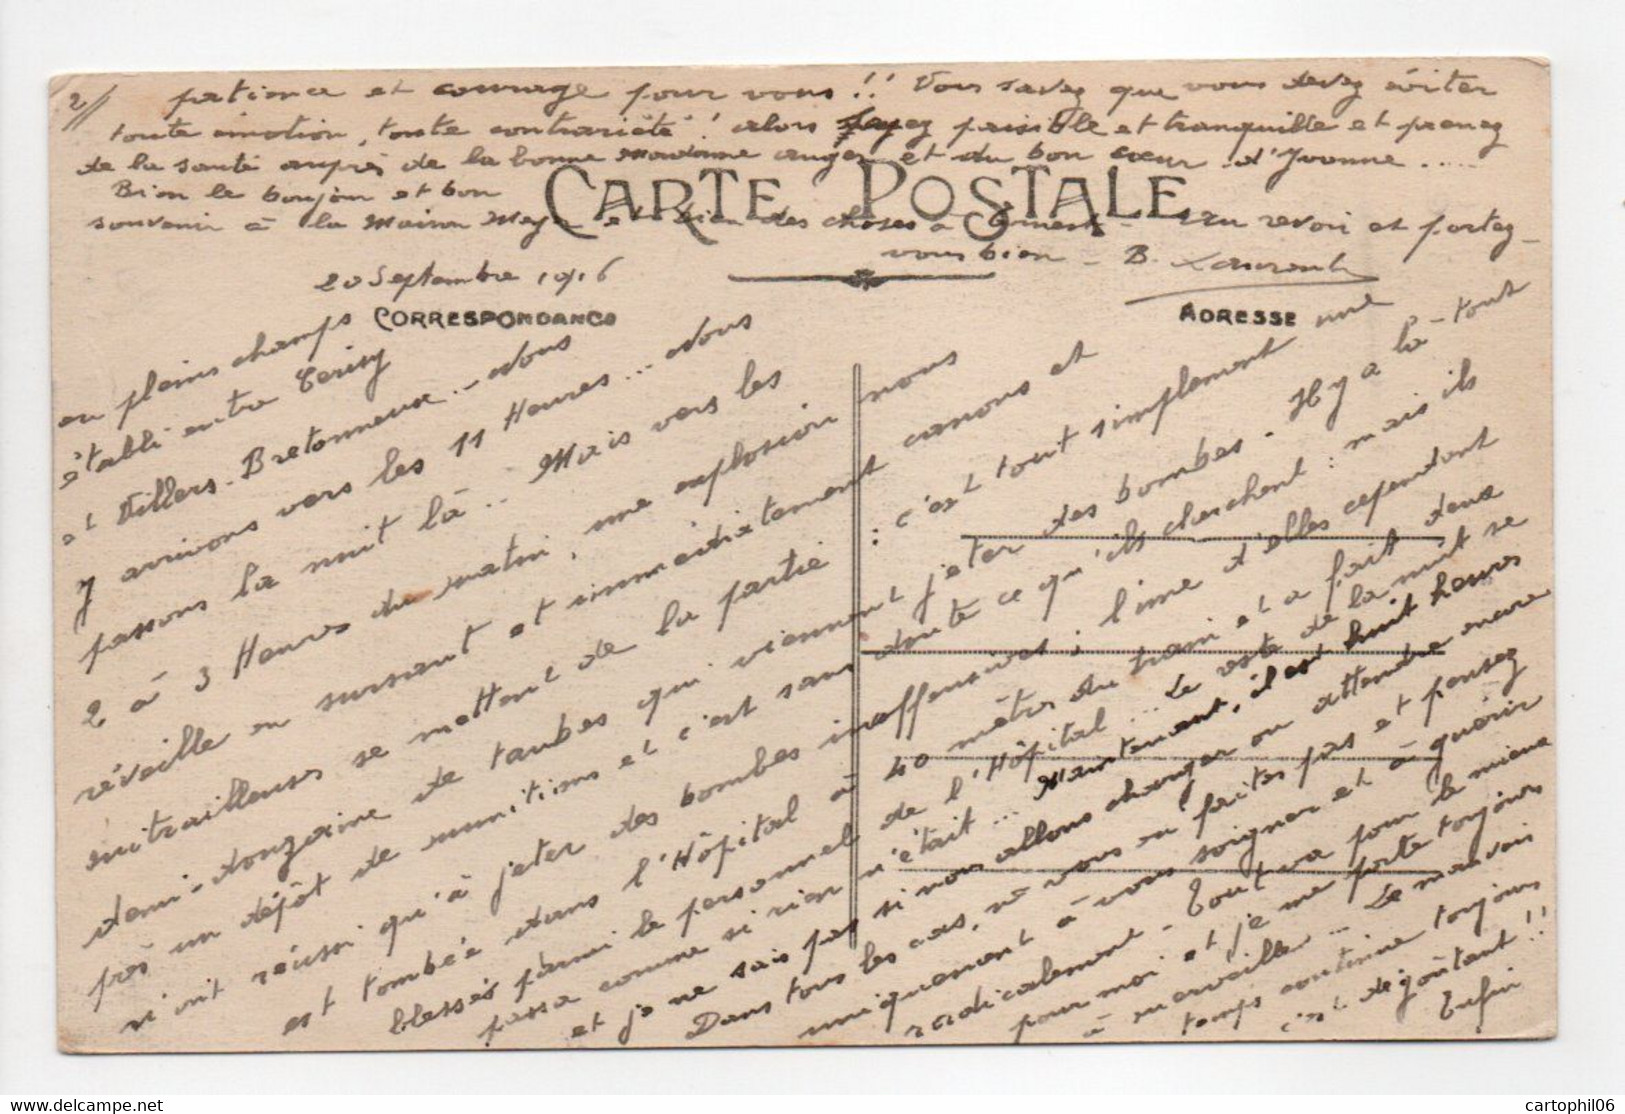 2/
patience et courage pour vous !! Vous savez que vous devez éviter
toute émotion, toute contrariété ! alors soyez paisible et tranquille et prenez
de la santé auprès de la bonne Madame Auger et du bon cœur d'Yvonne .....
Bien le bonjour et bon
CARTE POSTALE
souvenir à la Maison et bien des choses à Ernest - au revoir et portez-
vous bien - B. Laurent
20 Septembre 1916
CORRESPONDANCE
ADRESSE
en pleins champs
établi entre Cerisy
et Villers-Bretonneux... Nous
y arrivons vers les 11 Heures... Nous
passons la nuit là... Mais vers les
2 à 3 Heures du matin, une explosion nous
réveille en sursaut et immédiatement canons et
mitrailleuses se mettent de la partie : c'est tout simplement une
demi-douzaine de taubes qui viennent jeter des bombes. Il y a là-tout
près un dépôt de munitions et c'est sans doute ce qu'ils cherchent : mais ils
n'ont réussi qu'à jeter des bombes inoffensives ; l'une d'elles cependant
est tombée dans l'Hôpital à 40 mètres du train et a fait deux
blessés parmi le personnel de l'Hôpital... Le reste de la nuit se
passa comme si rien n'était... Maintenant, il est huit heures
et je ne sais pas si nous allons changer ou attendre encore
Dans tous les cas, ne vous en faites pas et pensez
uniquement à vous soigner et à guérir
radicalement - Tout va pour le mieux
pour moi et je me porte toujours
à merveille... Le mauvais
temps continue toujours
c'est dégoûtant !!
Enfin
cartophil06